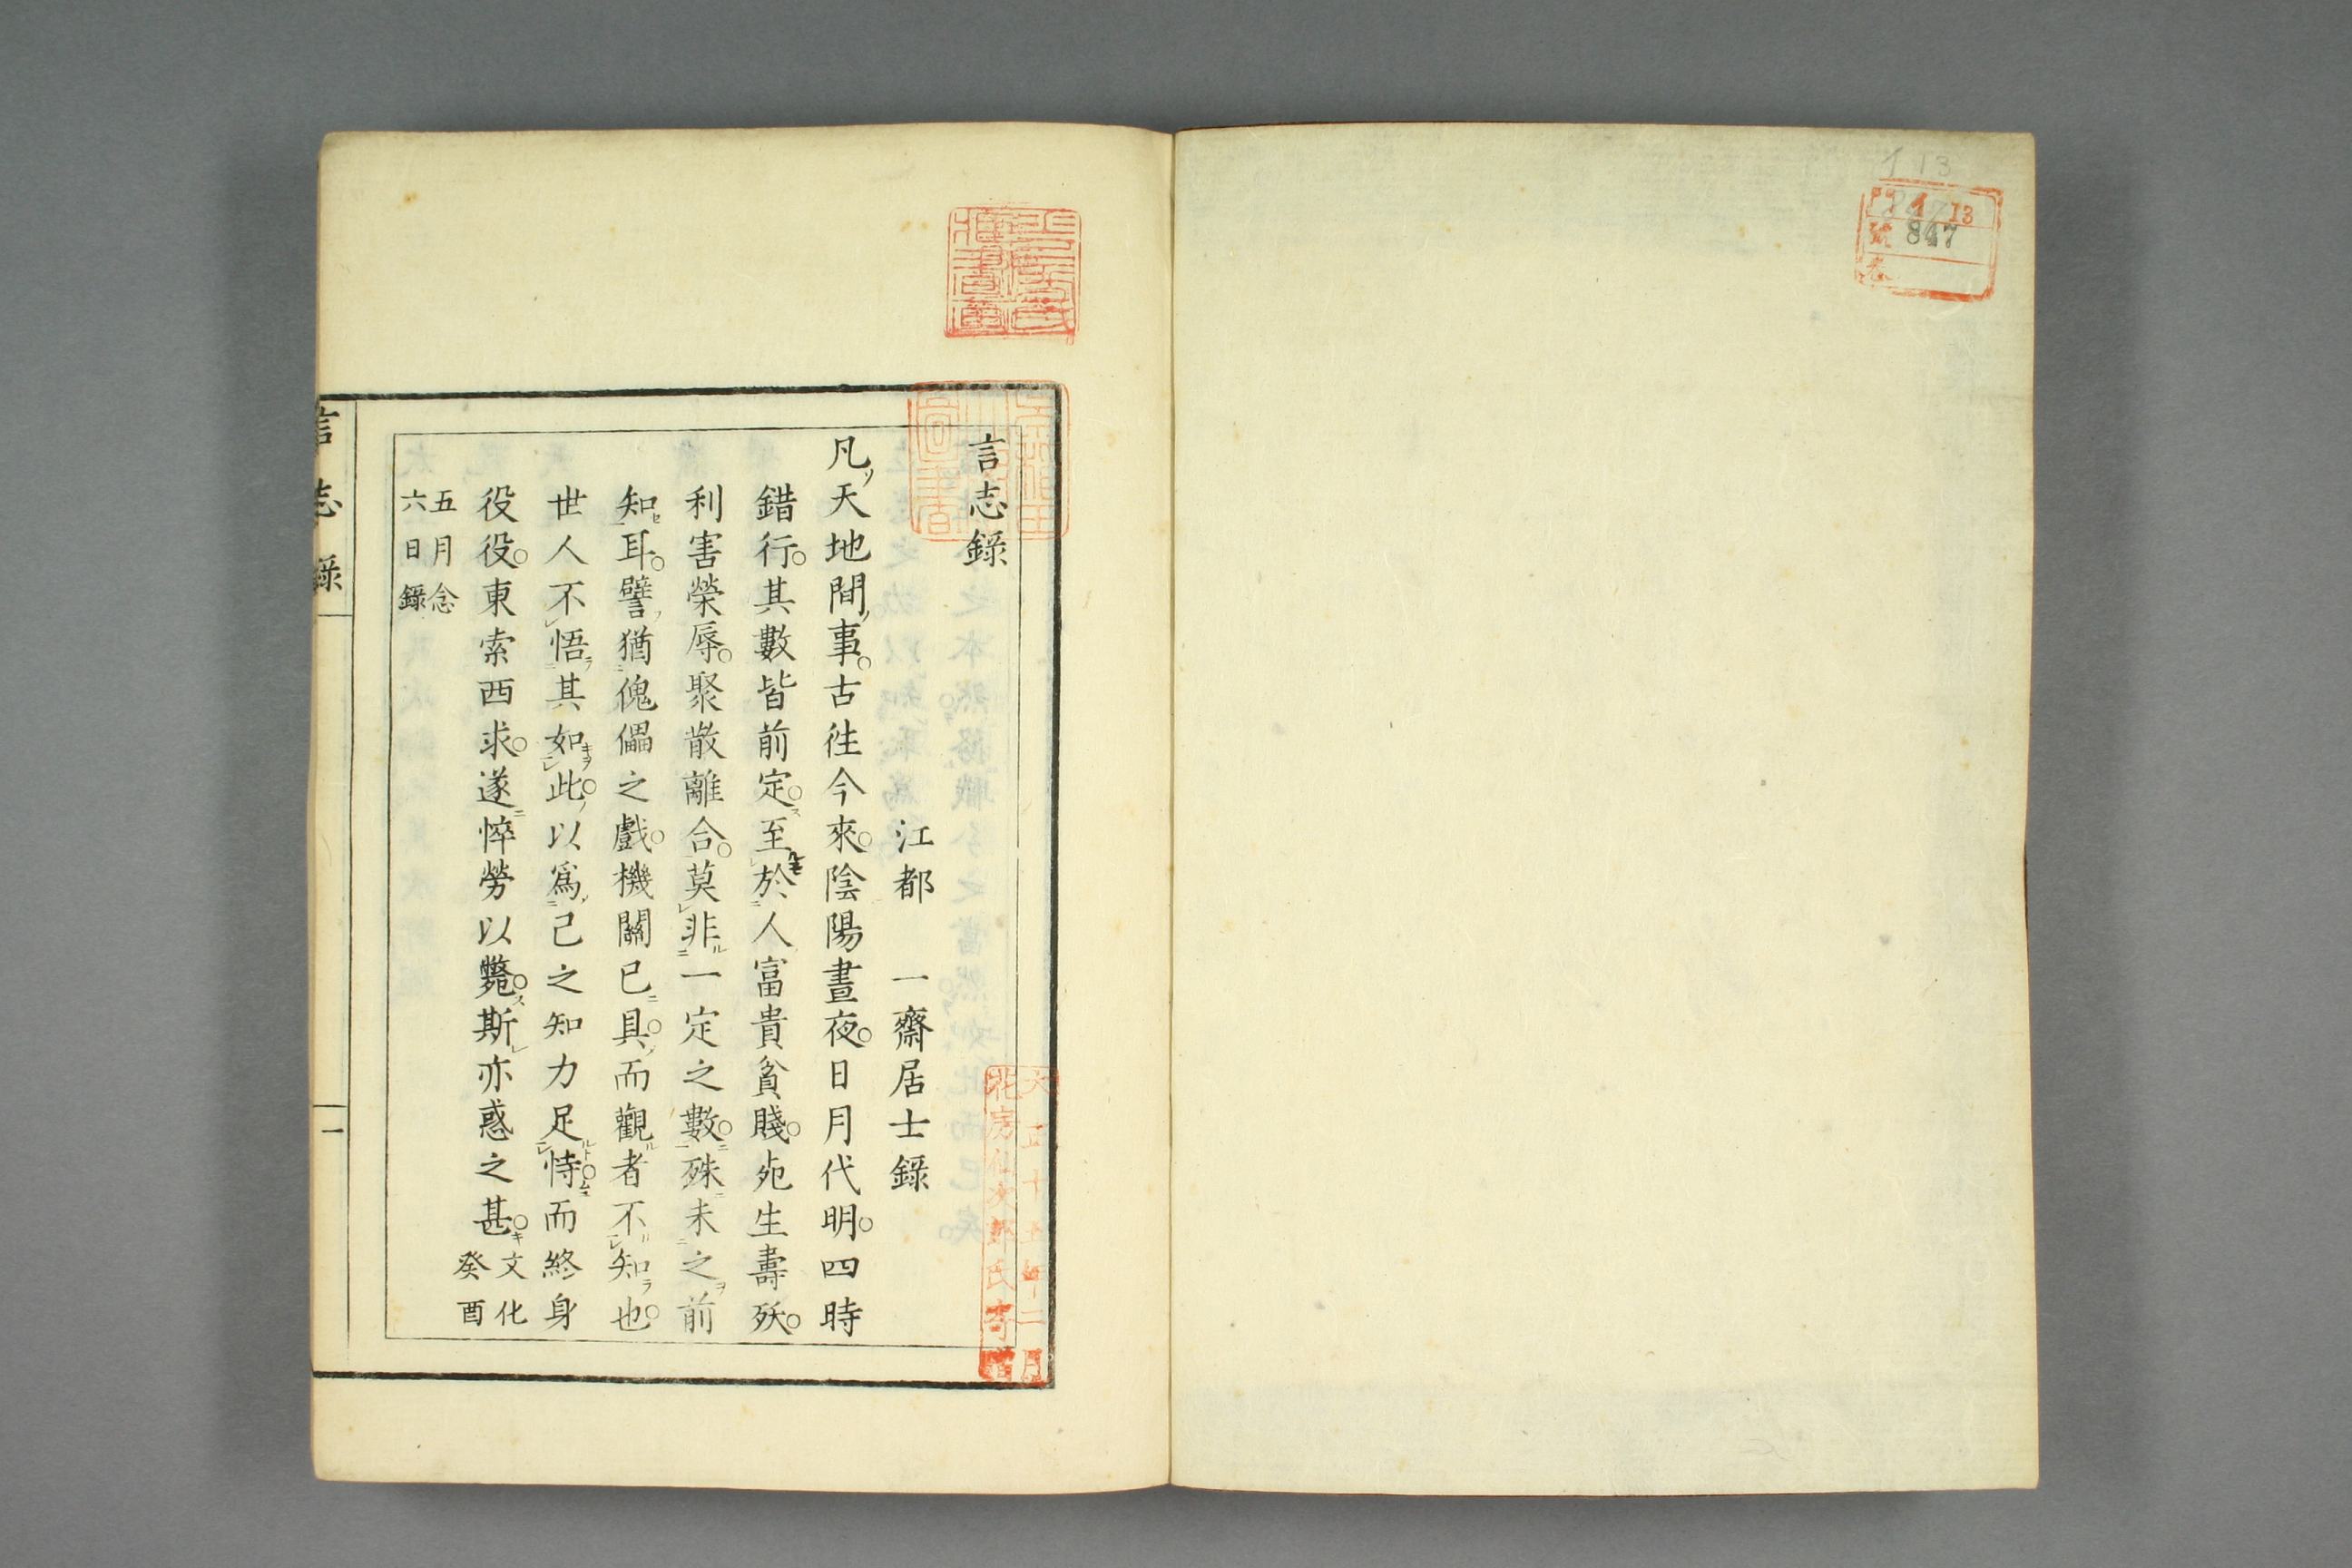 113
1 13
號 847
卷
言志錄
江都 一齋居士錄
凡天地間事古徃今來陰陽晝夜日月代明四時
錯行其數皆前定至於人富貴貧賤死生壽殀
利害榮辱聚散離合莫非一定之數殊未之前
知耳譬猶傀儡之戲機關已具而觀者不知也
世人不悟其如此以爲己之知力足恃而終身
役役東索西求遂悴勞以斃斯亦惑之甚 文化
癸酉
五月念
六日錄
言志錄
一
大正十五年十二月
花房仙次郎氏寄贈